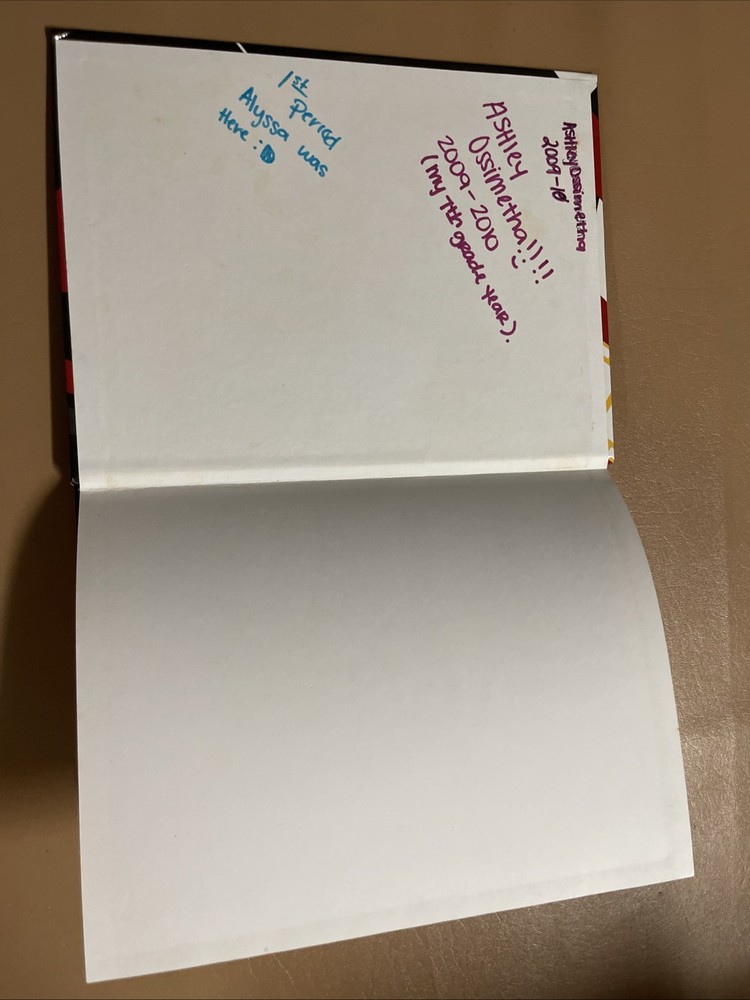 Ashley Ossimetha
2009-10
ASHley
Ossimetha!!!!!
2009-2010 :)
(my 7th grade year).
1st
Period
Alyssa was
Here :D